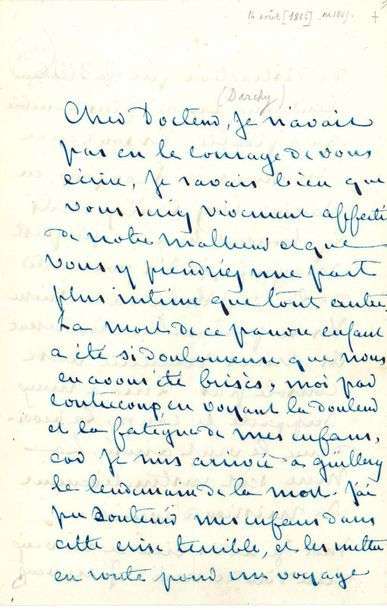 14 août [1865]
(Darchy)
Cher Docteur, Je n'avais
pas eu le courage de vous
écrire, Je savais bien que
vous seriez vivement affecté
de notre malheur et que
vous y prendriez une part
plus intime que tout autre.
La mort de ce pauvre enfant
a été si douloureuse que nous
en avons été brisés, moi par
contrecoup, en voyant la douleur
et la fatigue de mes enfans,
car Je suis arrivée à guillery
le lendemain de la mort. J'ai
pu soutenir mes enfans dans
cette crise terrible, et les mettre
en route pour un voyage